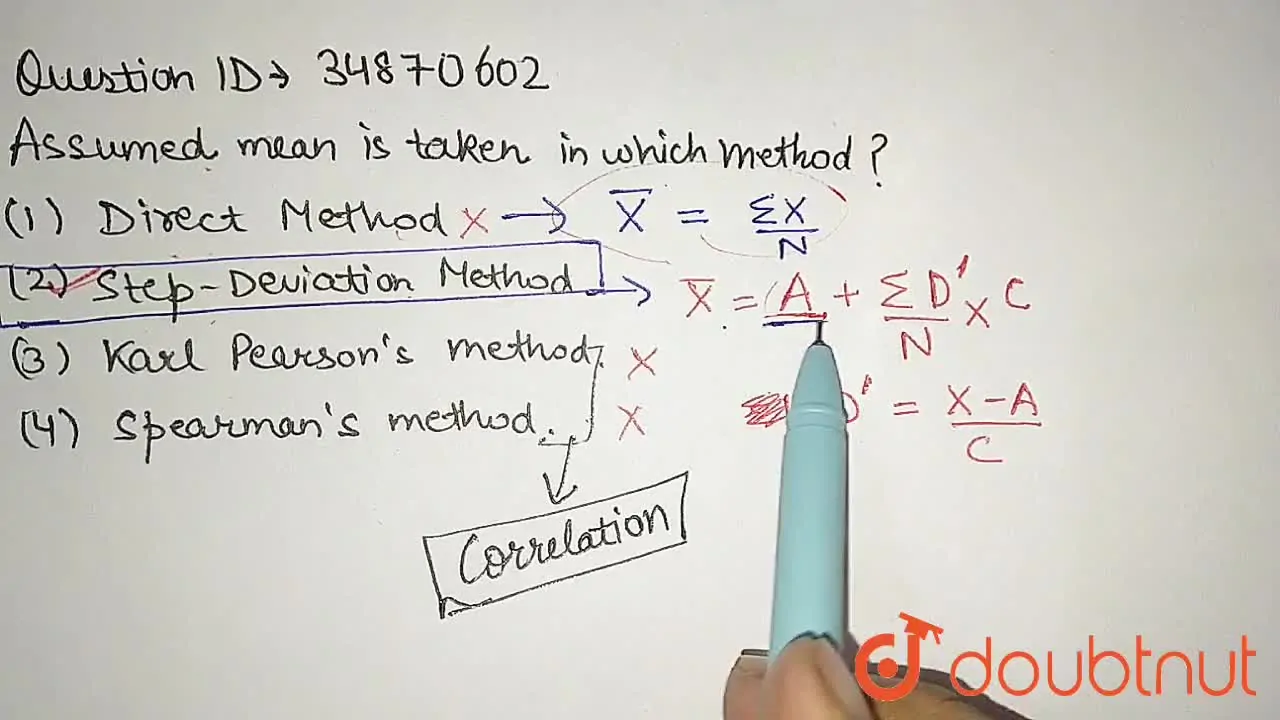 Question ID → 34870602
Assumed mean is taken in which method?
(1) Direct Method x → X̅ = ΣX/N
(2) Step-Deviation Method → X̅ = A + ΣD'/N x C
(3) Karl Pearson's method. x
D' = X-A/C
(4) Spearman's method. x
Correlation
doubtnut